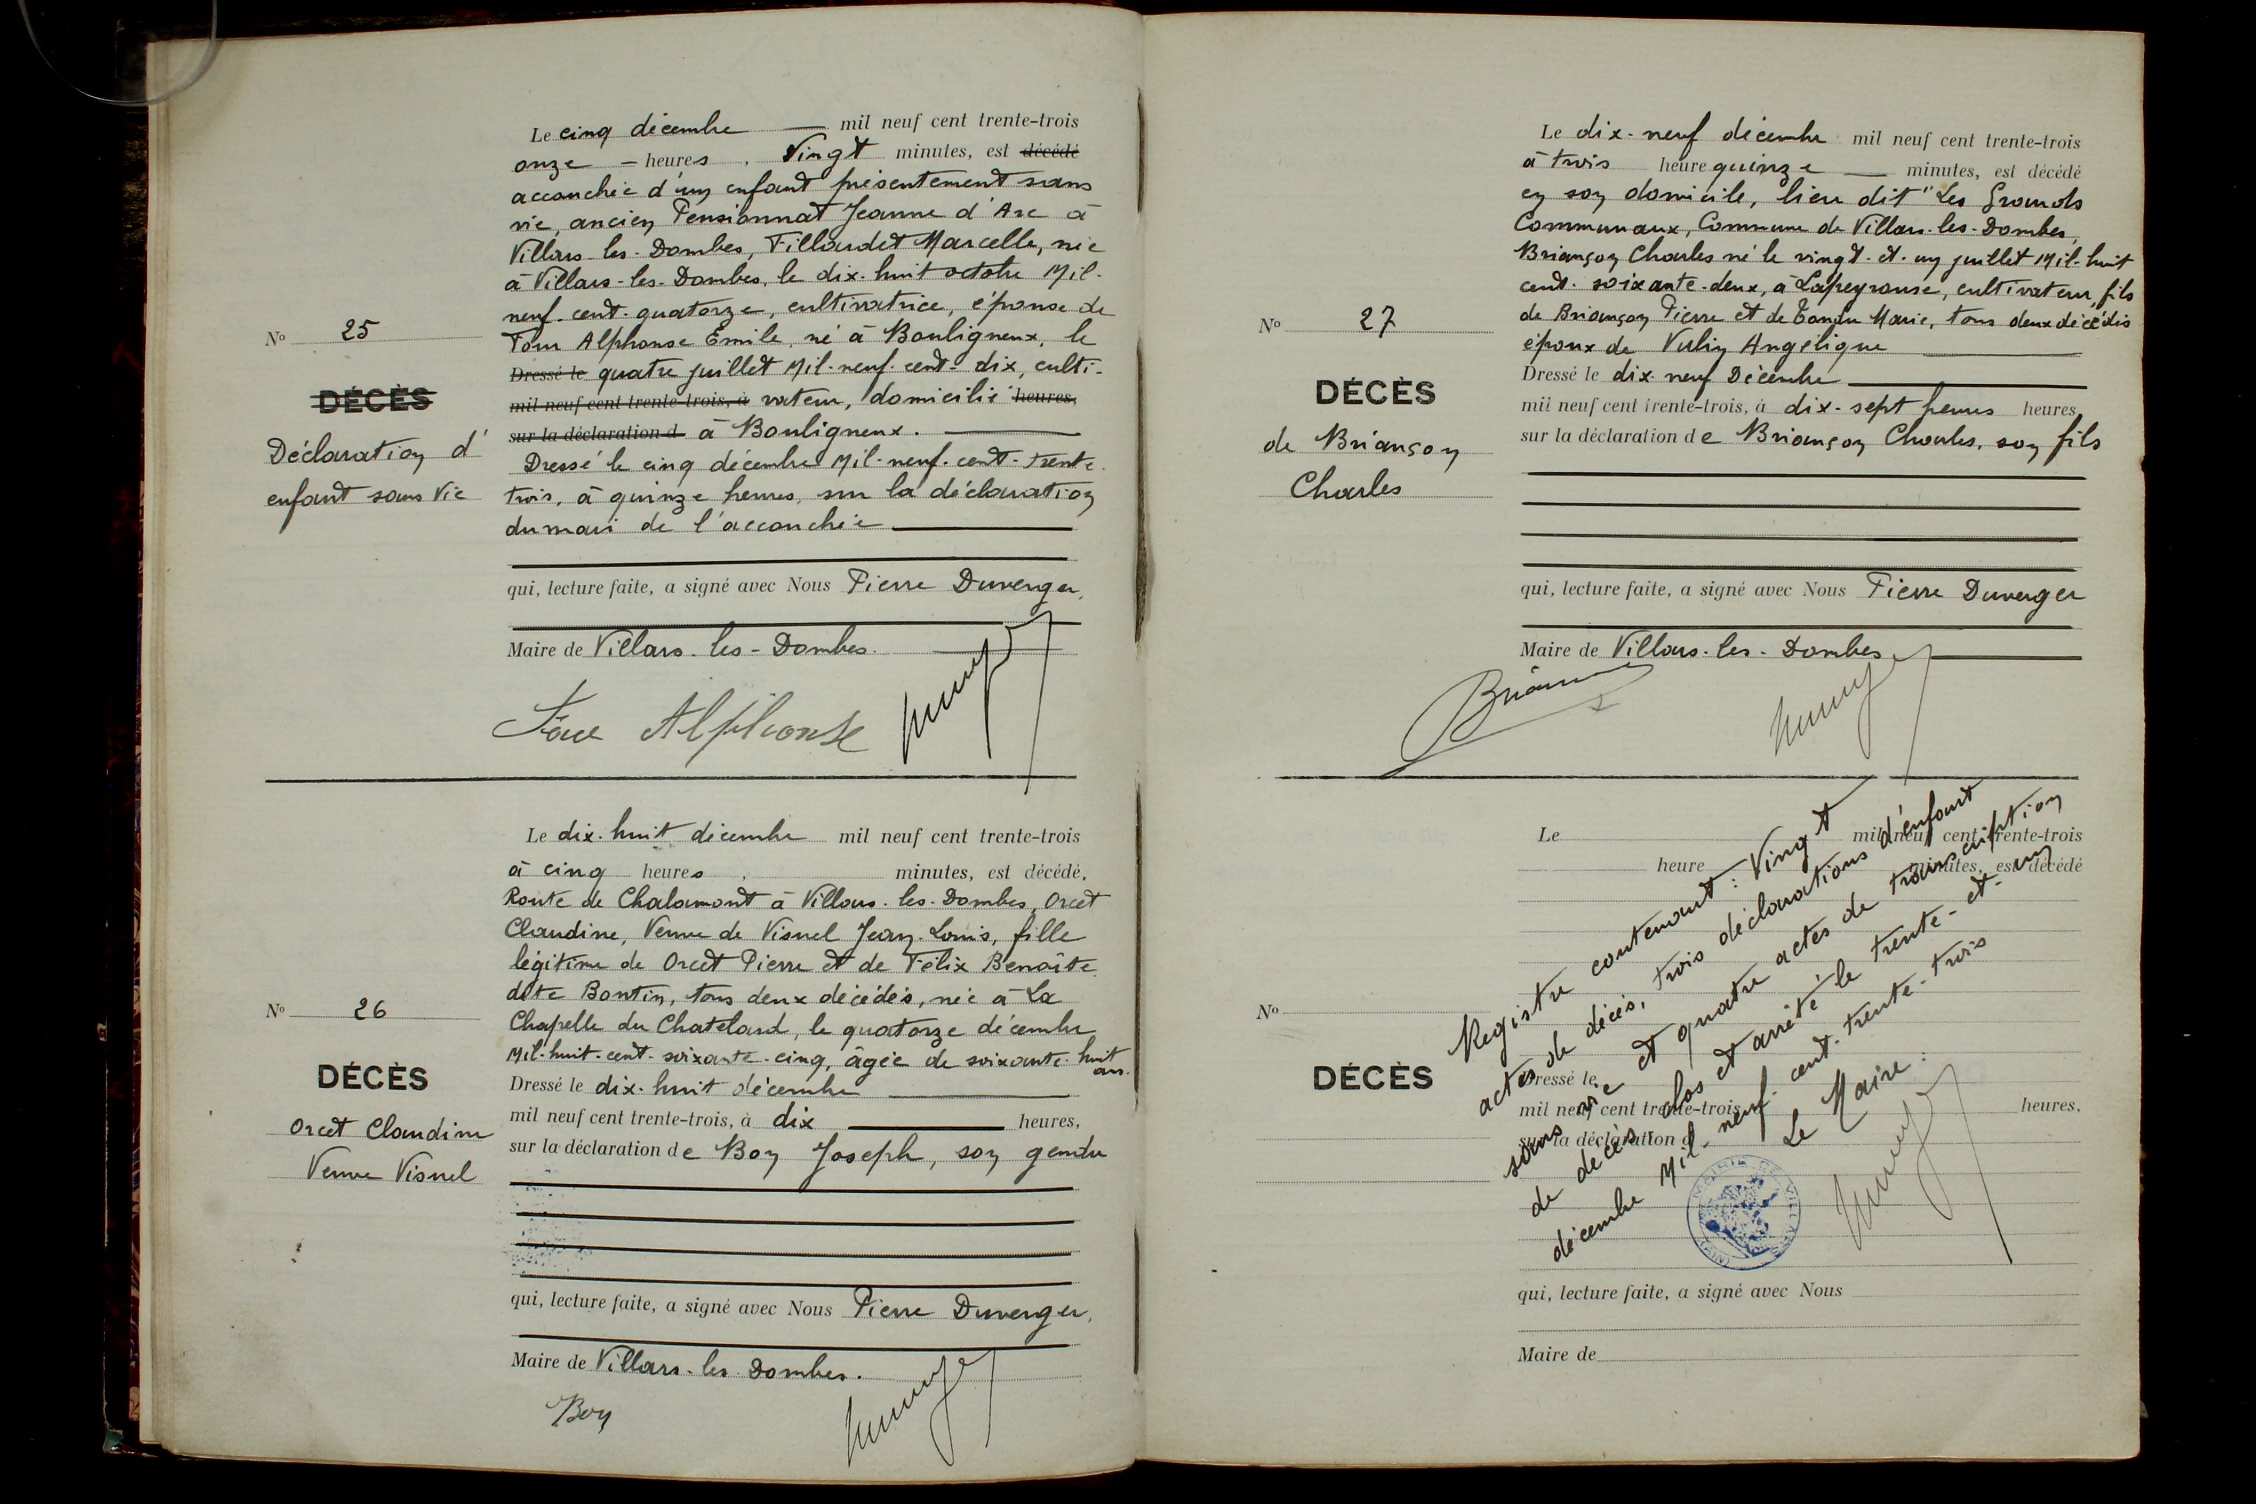 Le cinq décembre — mil neuf cent trente-trois
onze — heures, Vingt minutes, est décédé
accouchée d'un enfant présentement sans
vie, ancien Pensionnat Jeanne d'Arc à
Villars-les-Dombes, Fillardet Marcelle, née
à Villars-les-Dombes, le dix-huit octobre Mil-
neuf-cent-quatorze, cultivatrice, épouse de
Alphonse Emile, né à Bouligneux, le
Dressé le quatre juillet Mil-neuf-cent-dix, culti-
mil neuf cent trente-trois, à vateur, domicilié heures,
sur la déclaration d à Bouligneux.
Dressé le cinq décembre Mil-neuf-cent-trente-
trois, à quinze heures, sur la déclaration
du mari de l'accouchée
qui, lecture faite, a signé avec Nous Pierre Duverger,
Maire de Villars-les-Dombes.
Alphonse
No 25
DÉCÈS
Déclaration d'
enfant sans Vie
Le dix-huit décembre mil neuf cent trente-trois
à cinq heures, minutes, est décédé,
Route de Chalamont à Villars-les-Dombes, Orcet
Claudine, Veuve de Visnel Jean-Louis, fille
légitime de Orcet Pierre et de Félix Benoîte
dite Bontin, tous deux décédés, née à La
Chapelle du Chatelard, le quatorze décembre
Mil-huit-cent-soixante-cinq, âgée de soixante-huit
ans.
Dressé le dix-huit décembre
mil neuf cent trente-trois, à dix heures,
sur la déclaration de Boy Joseph, son gendre
qui, lecture faite, a signé avec Nous Pierre Duverger,
Maire de Villars-les-Dombes.
Boy
No 26
DÉCÈS
Orcet Claudine
Veuve Visnel
Le dix-neuf décembre mil neuf cent trente-trois
à trois heure quinze — minutes, est décédé
en son domicile, lieu dit "Les Grands
Communaux, Commune de Villars-les-Dombes,
Briançon Charles né le vingt-et-un juillet Mil-huit
cent-soixante-deux, à Lapeyrouse, cultivateur, fils
de Briançon Pierre et de Marie, tous deux décédés
époux de Vulin Angélique
Dressé le dix-neuf Décembre
mil neuf cent trente-trois, à dix-sept heures heures,
sur la déclaration de Briançon Charles, son fils
qui, lecture faite, a signé avec Nous Pierre Duverger
Maire de Villars-les-Dombes
No 27
DÉCÈS
de Briançon
Charles
Le mil neuf cent trente-trois
heure minutes, est décédé
No
DÉCÈS
Dressé le
mil neuf cent trente-trois heures,
sur la déclaration d
Registre contenant : Vingt
actes de décès, trois déclarations d'enfant
sans vie et quatre actes de transcription
de décès clos et arrêté le trente-et-un
décembre Mil-neuf-cent-trente-trois
Le Maire :
MAIRIE DE VILLARS (AIN)
qui, lecture faite, a signé avec Nous
Maire de